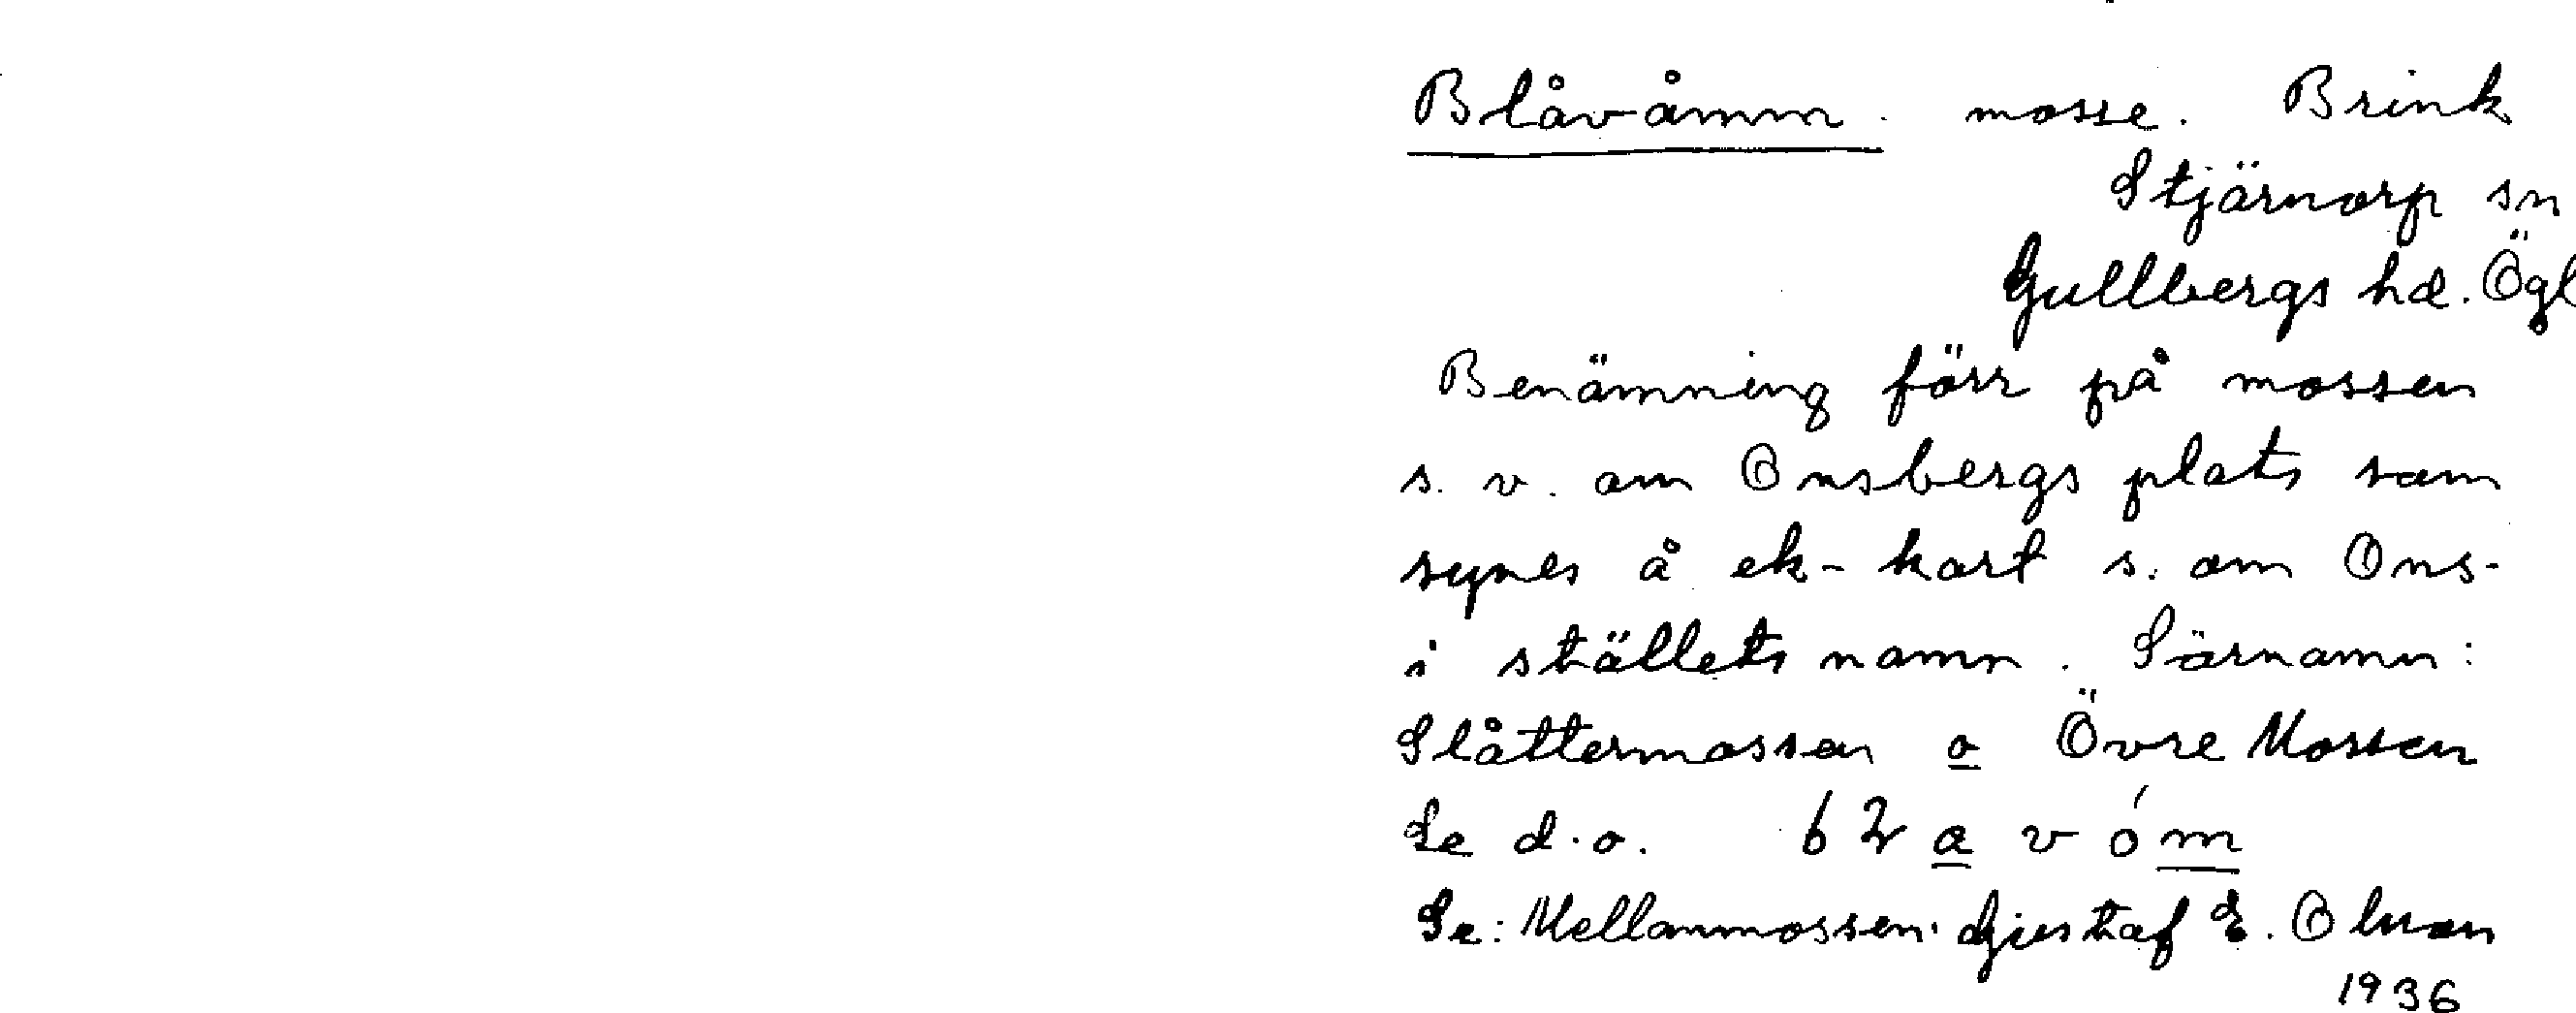 Blåvåmm. mosse. Brink
Stjärnorp sn
Gullbergs hd. Ögl
Benämning förr på mossen
s. v. om Onsbergs plats som
synes å ek-kart s. om Ons-
i ställets namn. Särnamn:
Slåttermossen o Övre Mossen
Se d.o.
Se: Mellanmossen. Gustaf E. Olson
1936